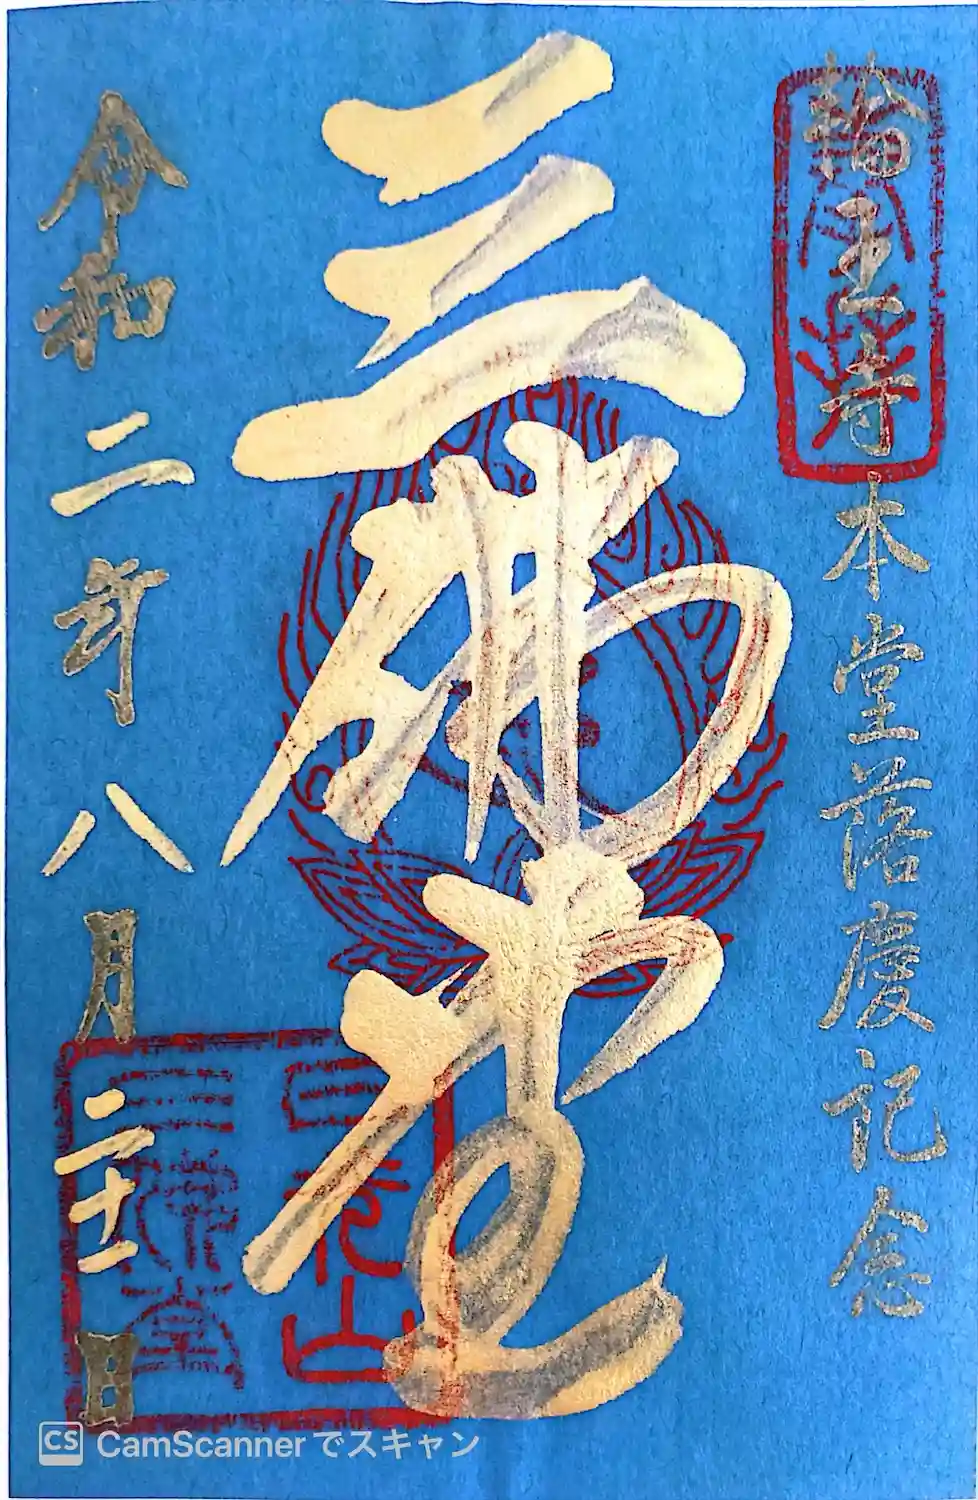 輪王寺本堂落慶記念
三佛堂
令和二年八月二十一日
CS CamScannerでスキャン